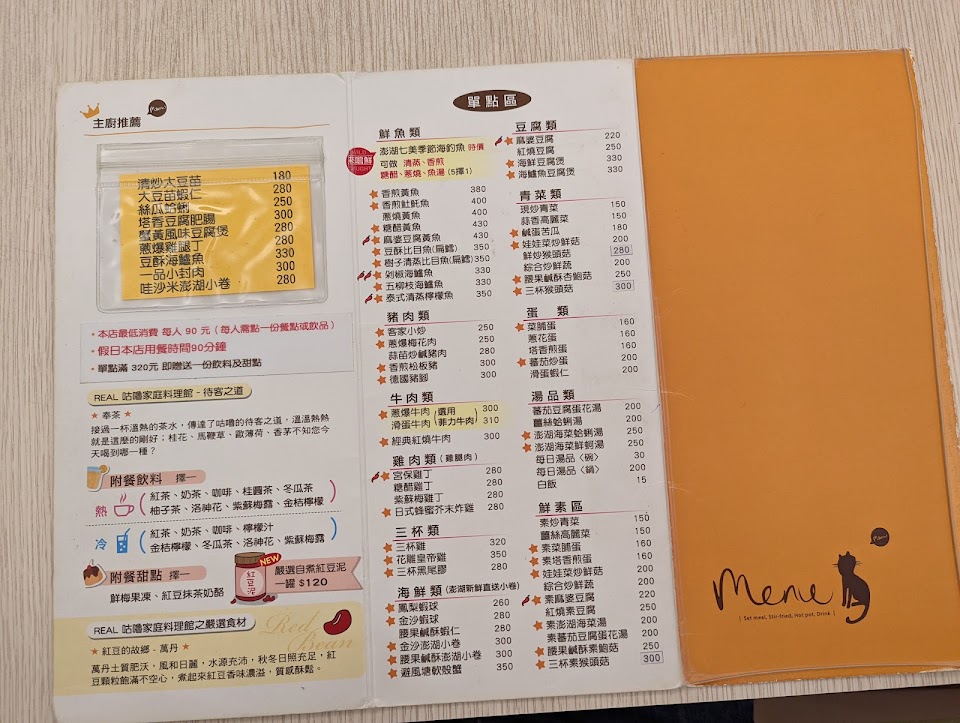 主廚推薦
清炒大豆苗 180
大豆苗蝦仁 280
絲瓜蛤蜊 250
塔香豆腐肥腸 300
蟹黃風味豆腐煲 280
蔥爆雞腿丁 280
豆酥海鱺魚 330
一品小封肉 300
哇沙米澎湖小卷 280
• 本店最低消費 每人 90 元（每人需點一份餐點或飲品）
• 假日本店用餐時間90分鐘
• 單點滿 320元 即贈送一份飲料及甜點
REAL 咕嚕家庭料理館 - 待客之道
★ 奉茶 ★
接過一杯溫熱的茶水，傳達了咕嚕的待客之道，溫溫熱熱
就是這麼的剛好；桂花、馬鞭草、歐薄荷、香茅不知您今
天喝到哪一種？
附餐飲料 擇一
熱
紅茶、奶茶、咖啡、桂圓茶、冬瓜茶
柚子茶、洛神花、紫蘇梅露、金桔檸檬
冷
紅茶、奶茶、咖啡、檸檬汁
金桔檸檬、冬瓜茶、洛神花、紫蘇梅露
附餐甜點 擇一
鮮梅果凍、紅豆抹茶奶酪
紅豆泥
NEW
嚴選自煮紅豆泥
一罐 $120
REAL 咕嚕家庭料理館之嚴選食材
Red Bean
★ 紅豆的故鄉 - 萬丹 ★
萬丹土質肥沃，風和日麗，水源充沛，秋冬日照充足，紅
豆顆粒飽滿不空心，煮起來紅豆香味濃溢，質感酥鬆。
單點區
鮮魚類
澎湖七美季節海釣魚 時價
可做 清蒸、香煎
糖醋、蔥燒、魚湯 (5擇1)
香煎黃魚 380
香煎𩵚魠魚 400
蔥燒黃魚 400
糖醋黃魚 400
麻婆豆腐黃魚 430
豆酥比目魚(扁鱈) 350
樹子清蒸比目魚(扁鱈) 350
剁椒海鱺魚 330
五柳枝海鱺魚 330
泰式清蒸檸檬魚 350
豬肉類
客家小炒 250
蔥爆梅花肉 250
蒜苗炒鹹豬肉 280
香煎松板豬 300
德國豬腳 300
牛肉類
蔥爆牛肉 300
滑蛋牛肉 310
選用
菲力牛肉
經典紅燒牛肉 300
雞肉類 (雞腿肉)
宮保雞丁 280
糖醋雞丁 280
紫蘇梅雞丁 280
日式蜂蜜芥末炸雞 280
三杯類
三杯雞 320
花雕皇帝雞 350
三杯黑尾膠 280
海鮮類 (澎湖新鮮直送小卷)
鳳梨蝦球 260
金沙蝦球 280
腰果鹹酥蝦仁 280
金沙澎湖小卷 300
腰果鹹酥澎湖小卷 300
避風塘軟殼蟹 350
豆腐類
麻婆豆腐 220
紅燒豆腐 250
海鮮豆腐煲 330
海鱺魚豆腐煲 330
青菜類
現炒青菜 150
蒜香高麗菜 150
鹹蛋苦瓜 180
娃娃菜炒鮮菇 200
鮮炒猴頭菇 280
綜合炒鮮蔬 200
腰果鹹酥杏鮑菇 250
三杯猴頭菇 300
蛋類
菜脯蛋 160
蔥花蛋 160
塔香煎蛋 160
蕃茄炒蛋 200
滑蛋蝦仁 200
湯品類
蕃茄豆腐蛋花湯 200
薑絲蛤蜊湯 200
澎湖海菜蛤蜊湯 250
澎湖海菜鮮蚵湯 250
每日湯品〈碗〉 30
每日湯品〈鍋〉 200
白飯 15
鮮素區
素炒青菜 150
薑絲高麗菜 150
素菜脯蛋 160
素塔香煎蛋 160
娃娃菜炒鮮菇 200
綜合炒鮮蔬 200
素麻婆豆腐 200
紅燒素豆腐 250
素澎湖海菜湯 200
素蕃茄豆腐蛋花湯 200
腰果鹹酥素鮑菇 250
三杯素猴頭菇 300
Menu
[ Set meal, Stir-fried, Hot pot, Drink ]